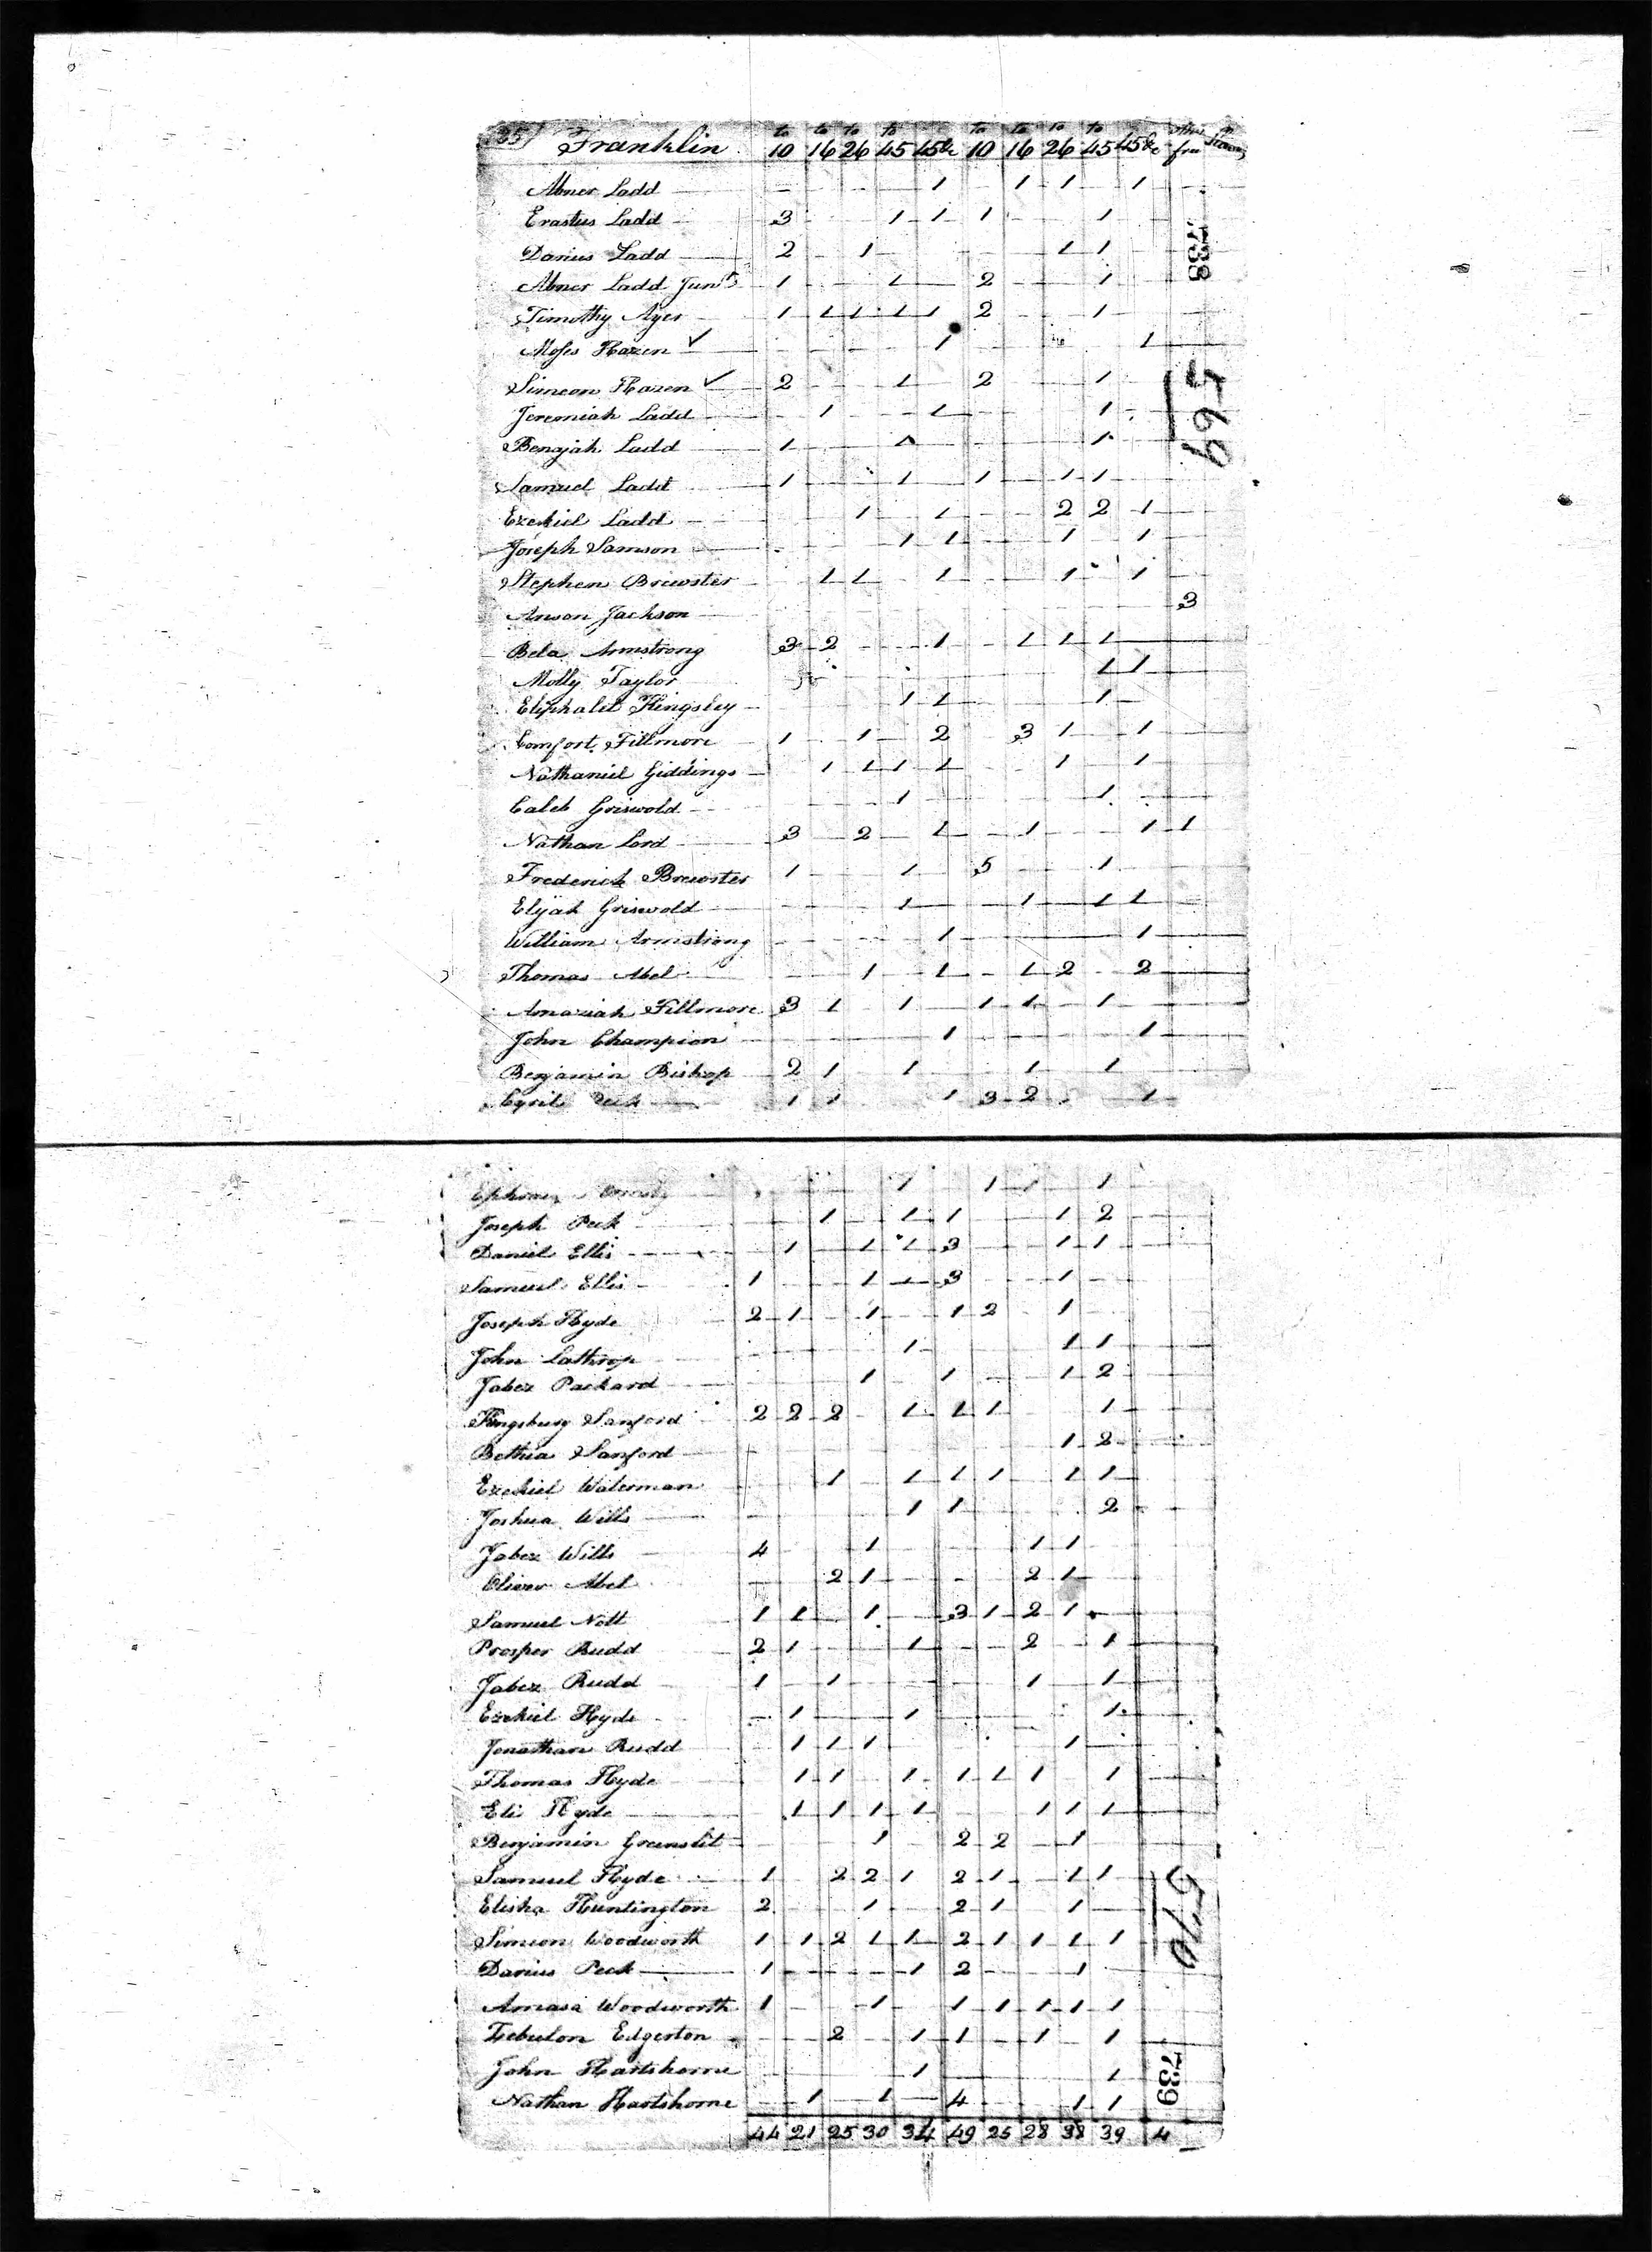 257 Franklin to 10 to 16 to 26 to 45 45 &c to 10 to 16 to 26 to 45 45 &c
Abner Ladd 1 1 1 1
Erastus Ladd 3 1 1 1 1
Darius Ladd 2 1 1 1
Abner Ladd Junr 1 1 2 1
Timothy Ayer 1 1 1 1 1 2 1
Moses Hazen ✓ 1 1
Simeon Hazen ✓ 2 1 2 1
Jeremiah Ladd 1 1 1
Benajah Ladd 1 1 1
Samuel Ladd 1 1 1 1 1
Ezekiel Ladd 1 1 2 2 1
Joseph Samson 1 1 1 1
Stephen Brewster 1 1 1 1 1
Anson Jackson 3
Bela Armstrong 3 2 1 1 1 1
Molly Taylor 1 1
Eliphalet Kingsley 1 1 1
Comfort Fillmore 1 1 2 3 1 1
Nathaniel Giddings 1 1 1 1 1 1
Caleb Griswold 1 1
Nathan Lord 3 2 1 1 1 1
Frederick Brewster 1 1 5 1
Elijah Griswold 1 1 1 1
William Armstrong 1 1
Thomas Abel 1 1 1 2 2
Amaziah Fillmore 3 1 1 1 1 1
John Champion 1 1
Benjamin Bishop 2 1 1 1 1
Cyril Peck 1 1 1 3 2 1
738
569
Ephraim 1 1 1 1
Joseph Peck 1 1 1 1 2
Daniel Ellis 1 1 1 3 1 1
Samuel Ellis 1 1 1 3 1
Joseph Hyde 2 1 1 1 2 1
John Lathrop 1 1 1
Jabez Packard 1 1 1 2
Kingsbury Sanford 2 2 2 1 1 1 1
Bethia Sanford 1 2
Ezekiel Waterman 1 1 1 1 1 1
Joshua Wills 1 1 2
Jabez Wills 4 1 1 1
Oliver Abel 2 1 2 1
Samuel Nott 1 1 1 3 1 2 1
Prosper Rudd 2 1 1 2 1
Jabez Rudd 1 1 1 1
Ezekiel Hyde 1 1 1
Jonathan Rudd 1 1 1 1
Thomas Hyde 1 1 1 1 1 1 1
Eli Hyde 1 1 1 1 1 1 1
Benjamin Greenslit 1 2 2 1
Samuel Hyde 1 2 2 1 2 1 1 1
Elisha Huntington 2 1 2 1 1
Simeon Woodworth 1 1 2 1 1 2 1 1 1 1
Darius Peck 1 1 2 1
Amasa Woodworth 1 1 1 1 1 1 1
Zebulon Edgerton 2 1 1 1 1
John Hartshorne 1 1
Nathan Hartshorne 1 1 4 1 1
44 21 25 30 34 49 25 28 38 39 4
570
739